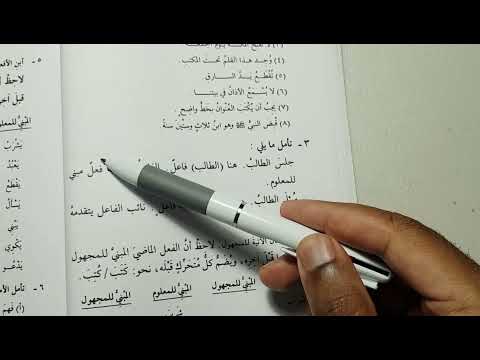 (٤) وُجد هذا القلمُ تحتَ المكتب.
(٥) تُقطَعُ يدُ السارق
(٦) لا يُسْمَعُ الأذانُ في بيتنا
(٧) يجبُ أن يُكْتَبَ العُنوانُ بخطٍّ واضحٍ.
(٨) قُبض النبيُّ ﷺ وهو ابنُ ثلاثٍ وستِّين سنةً
٣- تأمل ما يلي:
جلسَ الطالبُ. هنا (الطالب) فاعلٌ، فعلٌ مبني
للمعلوم.
الطالبُ فاعلٍ. نائب الفاعل يتقدمه
الآتية للمجهول. لاحظْ أنَّ الفعل الماضيَ المبنيَّ للمجهول
ما قبْلَ آخره، ويُضَمُّ كلُّ متحركٍ قبْلَه، نحو: كَتَبَ / كُتِبَ.
المبنيُّ للمجهول المبنيُّ للمعلوم المبنيُّ للمجهول
٥- أين الأفعا
لاحظْ
قبلَ آخرِ
المبنيُّ للمعلوم
يَشْرَبُ
يَعْبُدُ
يَقْطَعُ
يَسْأَلُ
يَبْنِي
يَكْوِي
يَدْعُو
٦- تأمل الأ
(أ) فَهِمَ